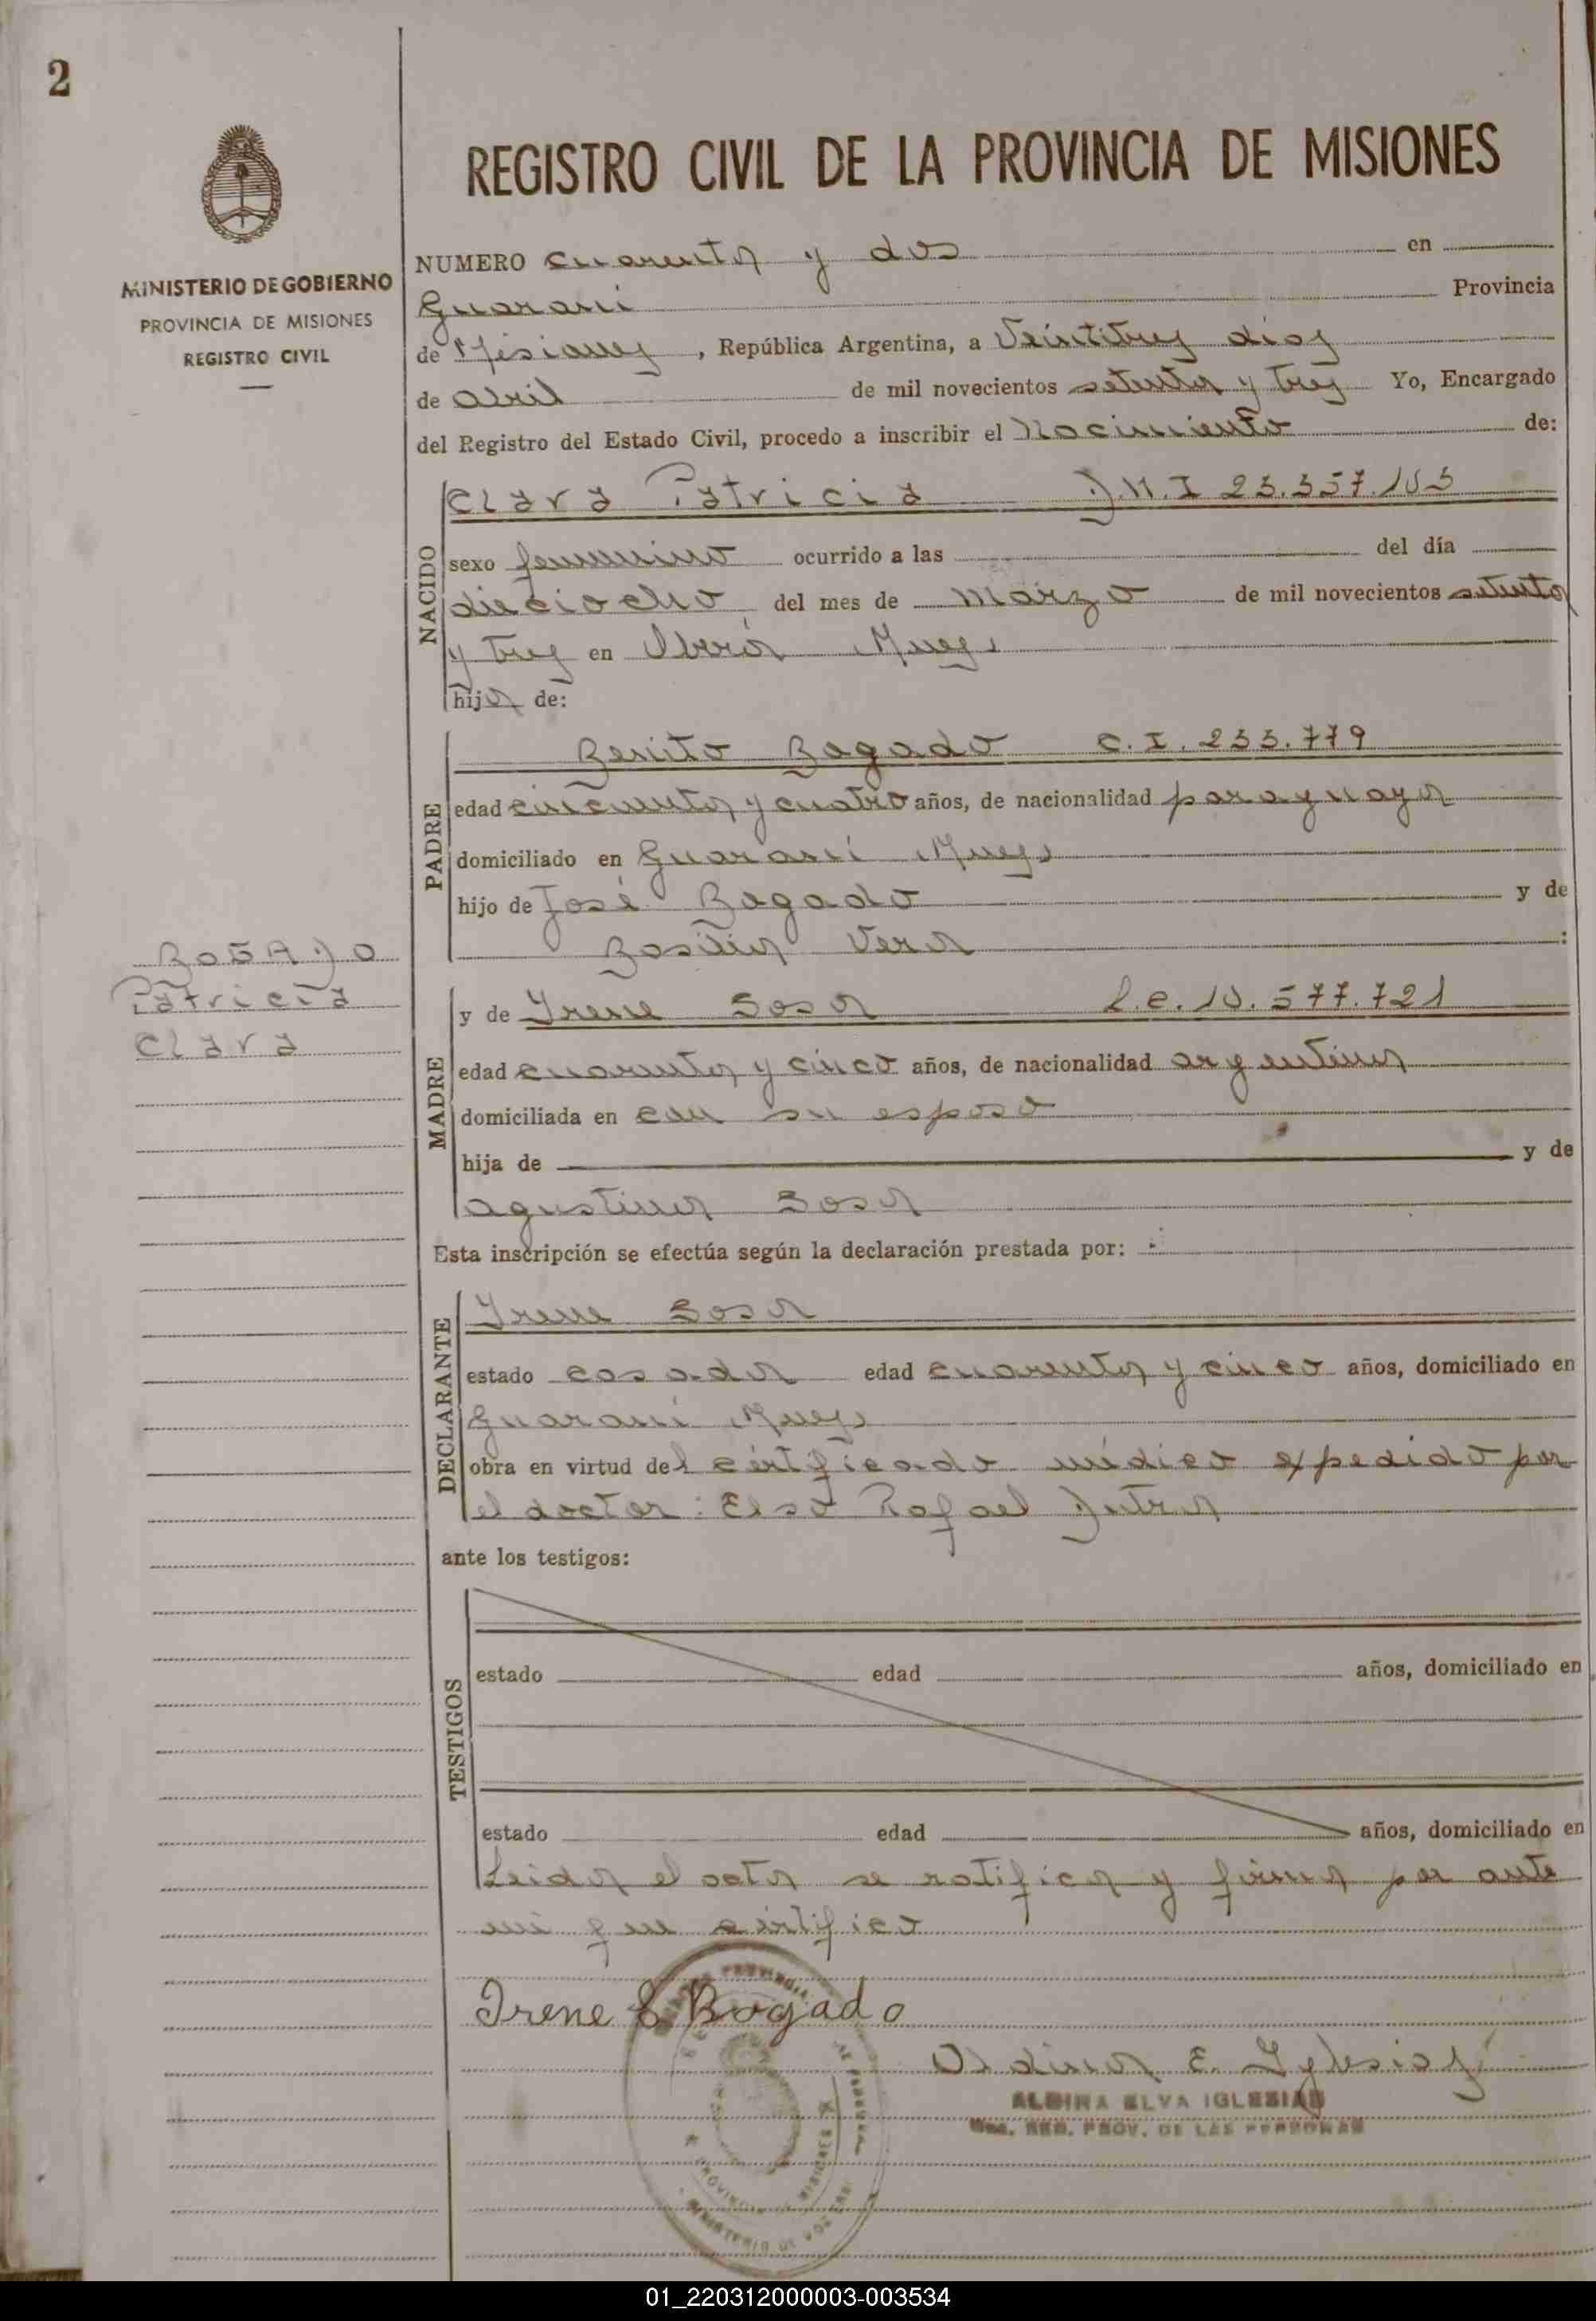 2
REGISTRO CIVIL DE LA PROVINCIA DE MISIONES
MINISTERIO DE GOBIERNO
PROVINCIA DE MISIONES
REGISTRO CIVIL
NUMERO cuarenta y dos en
Guaraní Provincia
de Misiones, República Argentina, a Veintitres días
de Abril de mil novecientos setenta y tres Yo, Encargado
del Registro del Estado Civil, procedo a inscribir el Nacimiento de:
Clara Patricia D.N.I 23.357.103
NACIDO
sexo femenino ocurrido a las del día
dieciocho del mes de Marzo de mil novecientos setenta
y tres en Oberá Mnes
hija de:
PADRE
Benito Bogado C.I. 233.779
edad cincuenta y cuatro años, de nacionalidad paraguaya
domiciliado en Guaraní Mnes
hijo de José Bogado y de
Basilia Vera :
BOGADO
Patricia
Clara
MADRE
y de Irene Sosa L.C. 10.577.721
edad cuarenta y cinco años, de nacionalidad argentina
domiciliada en con su esposo
hija de y de
Agustina Sosa
Esta inscripción se efectúa según la declaración prestada por:
DECLARANTE
Irene Sosa
estado casada edad cuarenta y cinco años, domiciliado en
Guaraní Mnes
obra en virtud del certificado médico expedido por
el doctor: Elso Rafael Dutra
ante los testigos:
TESTIGOS
estado edad años, domiciliado en
estado edad años, domiciliado en
Leida el acta se ratifica y firma por ante
mi que certifico
Irene S. Bogado
Aldina E. Iglesias
ALDINA ELVA IGLESIAS
REG. PROV. DE LAS PERSONAS
01_220312000003-003534